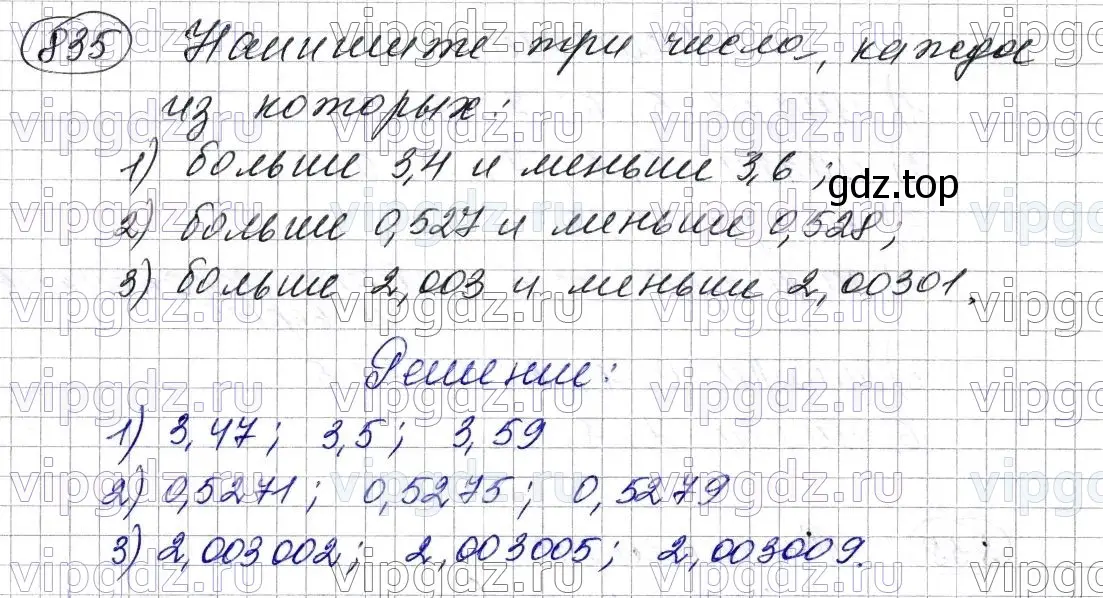 835 Напишите три числа, каждое
из которых:
1) больше 3,4 и меньше 3,6;
gdz.top
2) больше 0,527 и меньше 0,528;
3) больше 2,003 и меньше 2,00301.
Решение:
1) 3,47; 3,5; 3,59
2) 0,5271; 0,5275; 0,5279
3) 2,003002; 2,003005; 2,003009.
vipgdz.ru